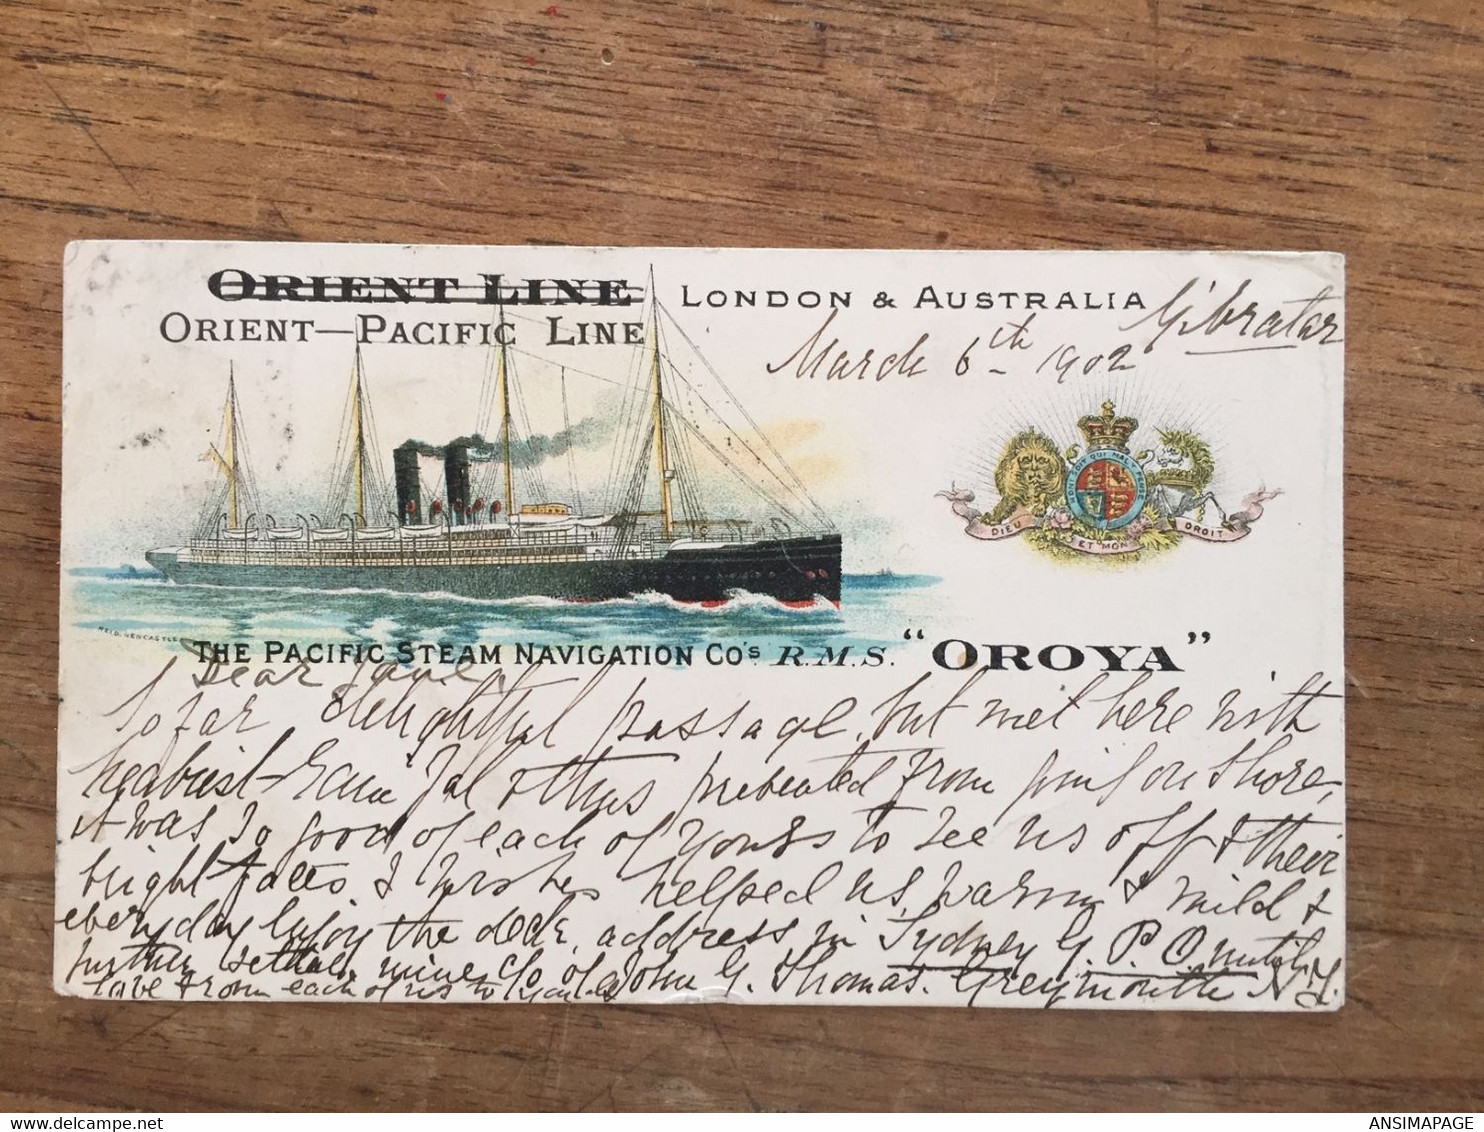 ORIENT LINE
LONDON & AUSTRALIA
ORIENT—PACIFIC LINE
Gibraltar
March 6th 1902
HONI SOIT QUI MAL Y PENSE
DIEU ET MON DROIT
REID. NEWCASTLE
THE PACIFIC STEAM NAVIGATION CO'S R.M.S. "OROYA"
Dear
So far delightful passage, but met here with
heaviest prevented from going on shore,
it was so good of each of yours to see us off & their
bright faces & wishes helped us, warm & mild &
every day enjoy the deck, address in Sydney G. P. O. until
further settled, mine c/o of John G. Thomas. Greymouth N.Z.
Love from each of us to
ANSIMAPAGE